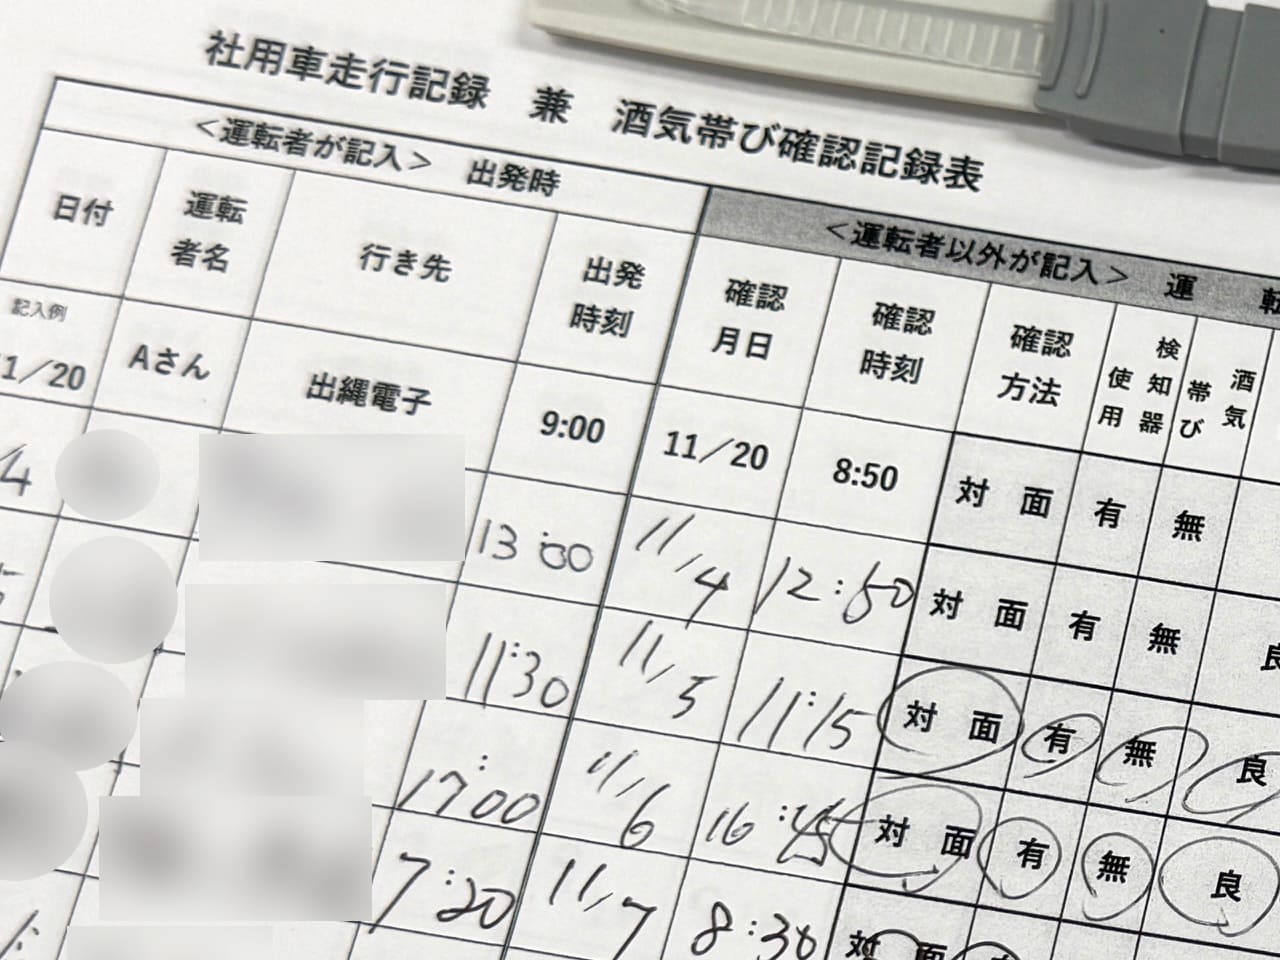 社用車走行記録 兼 酒気帯び確認記録表
＜運転者が記入＞ 出発時
＜運転者以外が記入＞ 運 転
日付 運転者名 行き先 出発時刻 確認月日 確認時刻 確認方法 検知器使用 酒気帯び
記入例
1/20 Aさん 出縄電子 9:00 11/20 8:50 対面 有 無
4 13:00 11/4 12:50 対面 有 無 良
11:30 11/5 11:15 対面 有 無 良
17:00 11/6 16:45 対面 有 無 良
7:20 11/7 8:30 対面